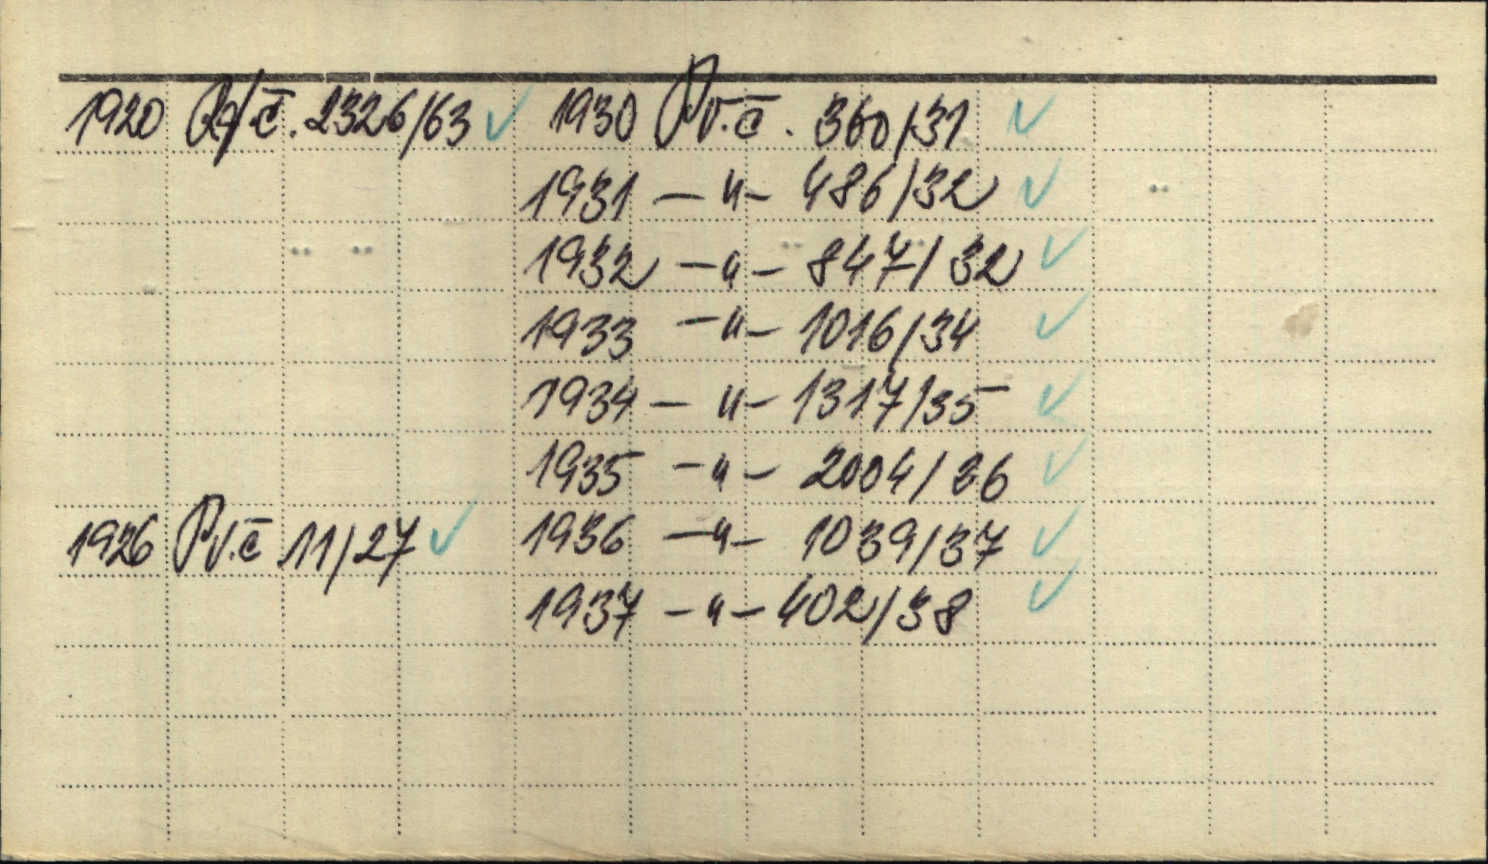 1920 č. 2326/63 ✓ 1930 Pv.č. 360/31 ✓
1931 — „ — 486/32 ✓
1932 — „ — 847/32 ✓
1933 — „ — 1016/34 ✓
1934 — „ — 1317/35 ✓
1935 — „ — 2004/36 ✓
1926 Pv.č 11/27 ✓ 1936 — „ — 1039/37 ✓
1937 — „ — 402/38 ✓